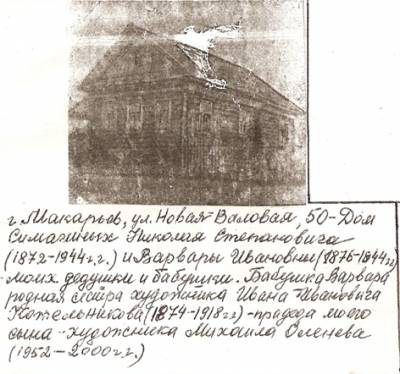 г. Макарьев, ул. Новая Валовая, 50-Дом
Симагиных Николая Степановича
(1872-1944г.г.) и Варвары Ивановны (1876-1944гг)
- моих дедушки и бабушки. Бабушка Варвара
родная сестра художника Ивана Ивановича
Кожельникова (1874-1918гг) - прадеда моего
сына - художника Михаила Оленева
(1952-2000г.г.)